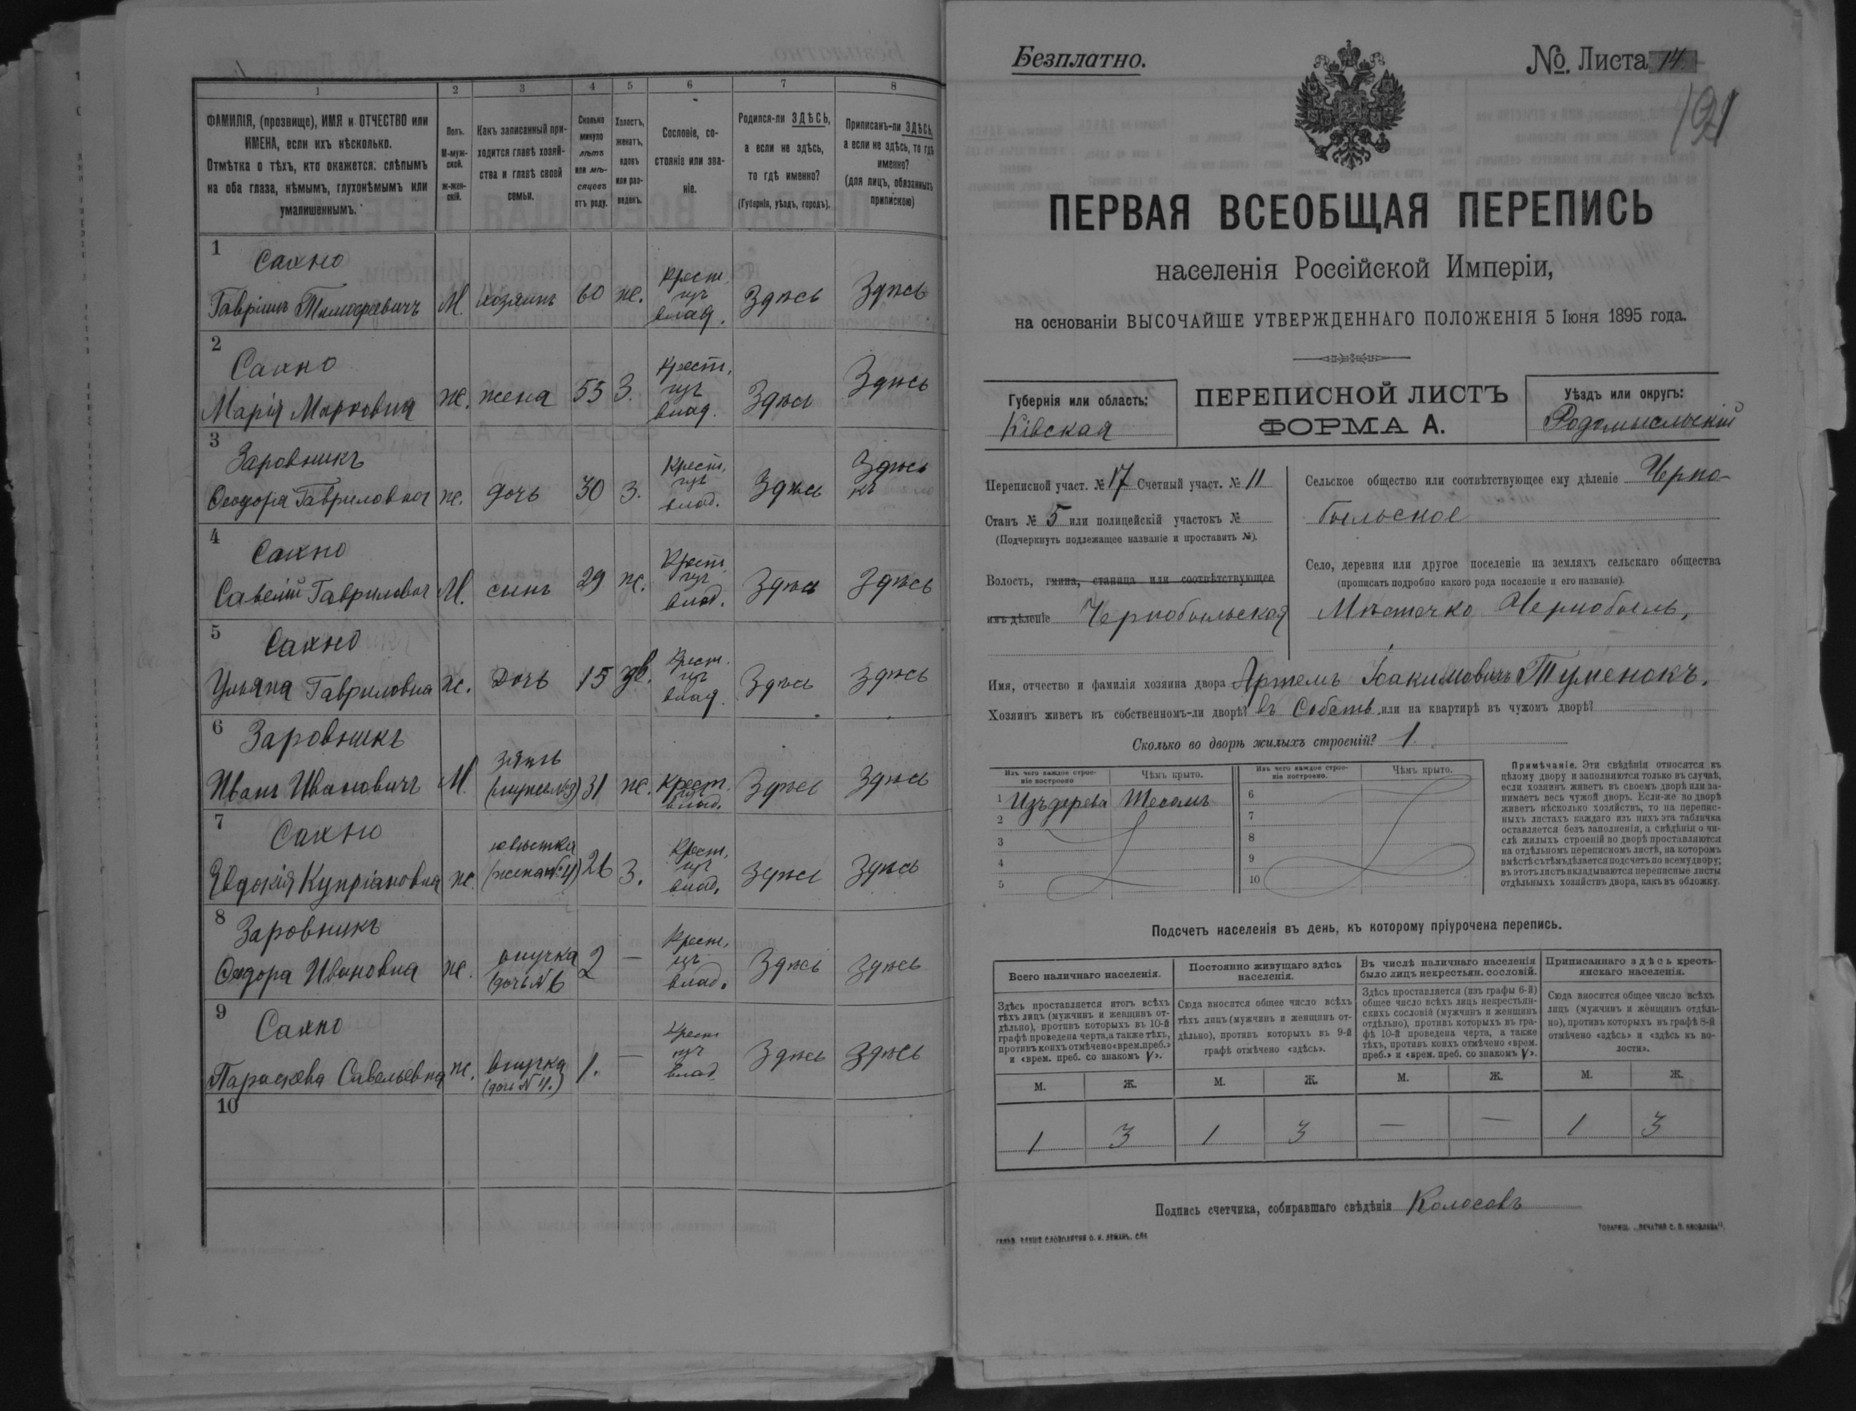 1
2
3
4
5
6
7
8
ФАМИЛІЯ, (прозвище), ИМЯ и ОТЧЕСТВО или
ИМЕНА, если ихъ нѣсколько.
Отмѣтка о тѣхъ, кто окажется: слѣпымъ
на оба глаза, нѣмымъ, глухонѣмымъ или
умалишеннымъ.
Полъ.
М-муж-
ской.
Ж-жен-
скій.
Какъ записанный при-
ходится главѣ хозяй-
ства и главѣ своей
семьи.
Сколько
минуло
лѣтъ
или мѣ-
сяцевъ
отъ роду.
Холостъ,
женатъ,
вдовъ
или раз-
веденъ.
Сословіе, со-
стояніе или зва-
ніе.
Родился-ли ЗДѢСЬ,
а если не здѣсь,
то гдѣ именно?
(Губернія, уѣздъ, городъ).
Приписанъ-ли ЗДѢСЬ,
а если не здѣсь, то гдѣ
именно?
(для лицъ, обязанныхъ
припискою)
1
Сахно
Гавріилъ Тимофеевичъ М. хозяинъ 60 ж. Крест. изъ влад. Здѣсь Здѣсь
2
Сахно
Марія Марковна ж. жена 55 З. Крест. изъ влад. Здѣсь Здѣсь
3
Заровникъ
Ѳеодора Гавриловна ж. дочь 30 З. Крест. изъ влад. Здѣсь Здѣсь
4
Сахно
Савелій Гавриловичъ М. сынъ 29 ж. Крест. изъ влад. Здѣсь Здѣсь
5
Сахно
Ульяна Гавриловна ж. Дочь 15 дв. Крест. изъ влад. Здѣсь Здѣсь
6
Заровникъ
Иванъ Ивановичъ М. зять (мужъ №3) 31 ж. Крест. изъ влад. Здѣсь Здѣсь
7
Сахно
Евдокія Купріановна ж. невѣстка (жена №4) 26 З. Крест. изъ влад. Здѣсь Здѣсь
8
Заровникъ
Ѳедора Ивановна ж. внучка (дочь №6 2 — Крест. изъ влад. Здѣсь Здѣсь
9
Сахно
Параскева Савельевна ж. внучка (дочь №4.) 1. — Крест. изъ влад. Здѣсь Здѣсь
10
Безплатно.
№. Листа 14
121
ПЕРВАЯ ВСЕОБЩАЯ ПЕРЕПИСЬ
населенія Россійской Имперіи,
на основаніи ВЫСОЧАЙШЕ УТВЕРЖДЕННАГО ПОЛОЖЕНІЯ 5 Іюня 1895 года.
Губернія или область:
Кіевская
ПЕРЕПИСНОЙ ЛИСТЪ
ФОРМА А.
Уѣздъ или округъ:
Радомысльскій
Переписной участ. № 17 Счетный участ. № 11
Станъ № 5 или полицейскій участокъ №
(Подчеркнуть подлежащее названіе и проставить №).
Волость, гмина, станица или соотвѣтствующее
имъ дѣленіе Чернобыльская
Сельское общество или соотвѣтствующее ему дѣленіе Черно-
быльское
Село, деревня или другое поселеніе на земляхъ сельскаго общества
(прописать подробно какого рода поселеніе и его названіе).
Мѣстечко Чернобыль,
Имя, отчество и фамилія хозяина двора Артемъ Іоакимовичъ Туменокъ.
Хозяинъ живетъ въ собственномъ-ли дворѣ? въ Собств. или на квартирѣ въ чужомъ дворѣ?
Сколько во дворѣ жилыхъ строеній? 1.
Изъ чего каждое строе-
ніе построено
Чѣмъ крыто.
Изъ чего каждое строе-
ніе построено.
Чѣмъ крыто.
1 Изъ дерева Тесомъ
2
3
4
5
6
7
8
9
10
Примѣчаніе. Эти свѣдѣнія относятся къ
цѣлому двору и заполняются только въ случаѣ,
если хозяинъ живетъ въ своемъ дворѣ или за-
нимаетъ весь чужой дворъ. Если-же во дворѣ
живетъ нѣсколько хозяйствъ, то на перепис-
ныхъ листахъ каждаго изъ нихъ эта табличка
оставляется безъ заполненія, а свѣдѣнія о чи-
слѣ жилыхъ строеній во дворѣ проставляются
на отдѣльномъ переписномъ листѣ, на которомъ
вмѣстѣ съ тѣмъ дѣлается подсчетъ по всему двору;
въ этотъ листъ вкладываются переписные листы
отдѣльныхъ хозяйствъ двора, какъ въ обложку.
Подсчетъ населенія въ день, къ которому пріурочена перепись.
Всего наличнаго населенія.
Постоянно живущаго здѣсь
населенія.
Въ числѣ наличнаго населенія
было лицъ некрестьян. сословій.
Приписаннаго здѣсь кресть-
янскаго населенія.
Здѣсь проставляется итогъ всѣхъ
тѣхъ лицъ (мужчинъ и женщинъ от-
дѣльно), противъ которыхъ въ 10-й
графѣ проведена черта, а также тѣхъ,
противъ коихъ отмѣчено «врем. преб.»
и «врем. преб. со знакомъ V».
Сюда вносится общее число всѣхъ
тѣхъ лицъ (мужчинъ и женщинъ от-
дѣльно), противъ которыхъ въ 9-й
графѣ отмѣчено «здѣсь».
Здѣсь проставляется (изъ графы 6-й)
общее число всѣхъ лицъ некрестьян-
скихъ сословій (мужчинъ и женщинъ
отдѣльно), противъ которыхъ въ гра-
фѣ 10-й проведена черта, а также
тѣхъ, противъ коихъ отмѣчено «врем.
преб.» и «врем. преб. со знакомъ V».
Сюда вносится общее число всѣхъ
лицъ (мужчинъ и женщинъ отдѣль-
но), противъ которыхъ въ графѣ 8-й
отмѣчено «здѣсь» и «здѣсь къ во-
лости».
М. Ж. М. Ж. М. Ж. М. Ж.
1 3 1 3 — — 1 3
Подпись счетчика, собиравшаго свѣдѣнія Колосовъ